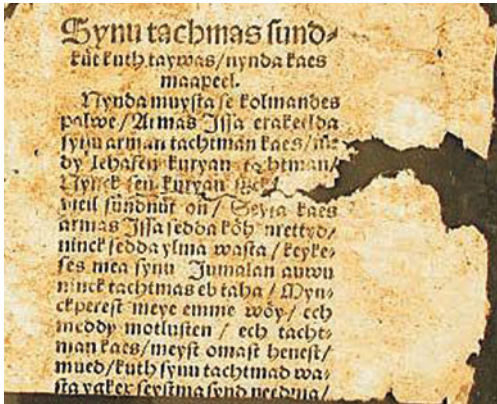 Synu tachmas sund⸗
küt kuth taywas/nynda kaes
maapeel.
Nynda muysta se kolmandes
palwe/Armas Issa erakeelda
synu arman tachtman kaes/
dy lehasen kuryan tachtman/
Nynck sen kuryan
weil sündnüt on/ Seyta kaes
armas Issa sedda köh mettyd/
ninck sedda ylma wasta/keyke⸗
ses mea synu Jumalan auwu
ninck tachtmas eb taha/Myn⸗
ckperest meye emme wöy/ech
meddy motlusten/ ech tacht⸗
man kaes/meyst omast henest/
mued/kuth synu tachtmad wa⸗
sta